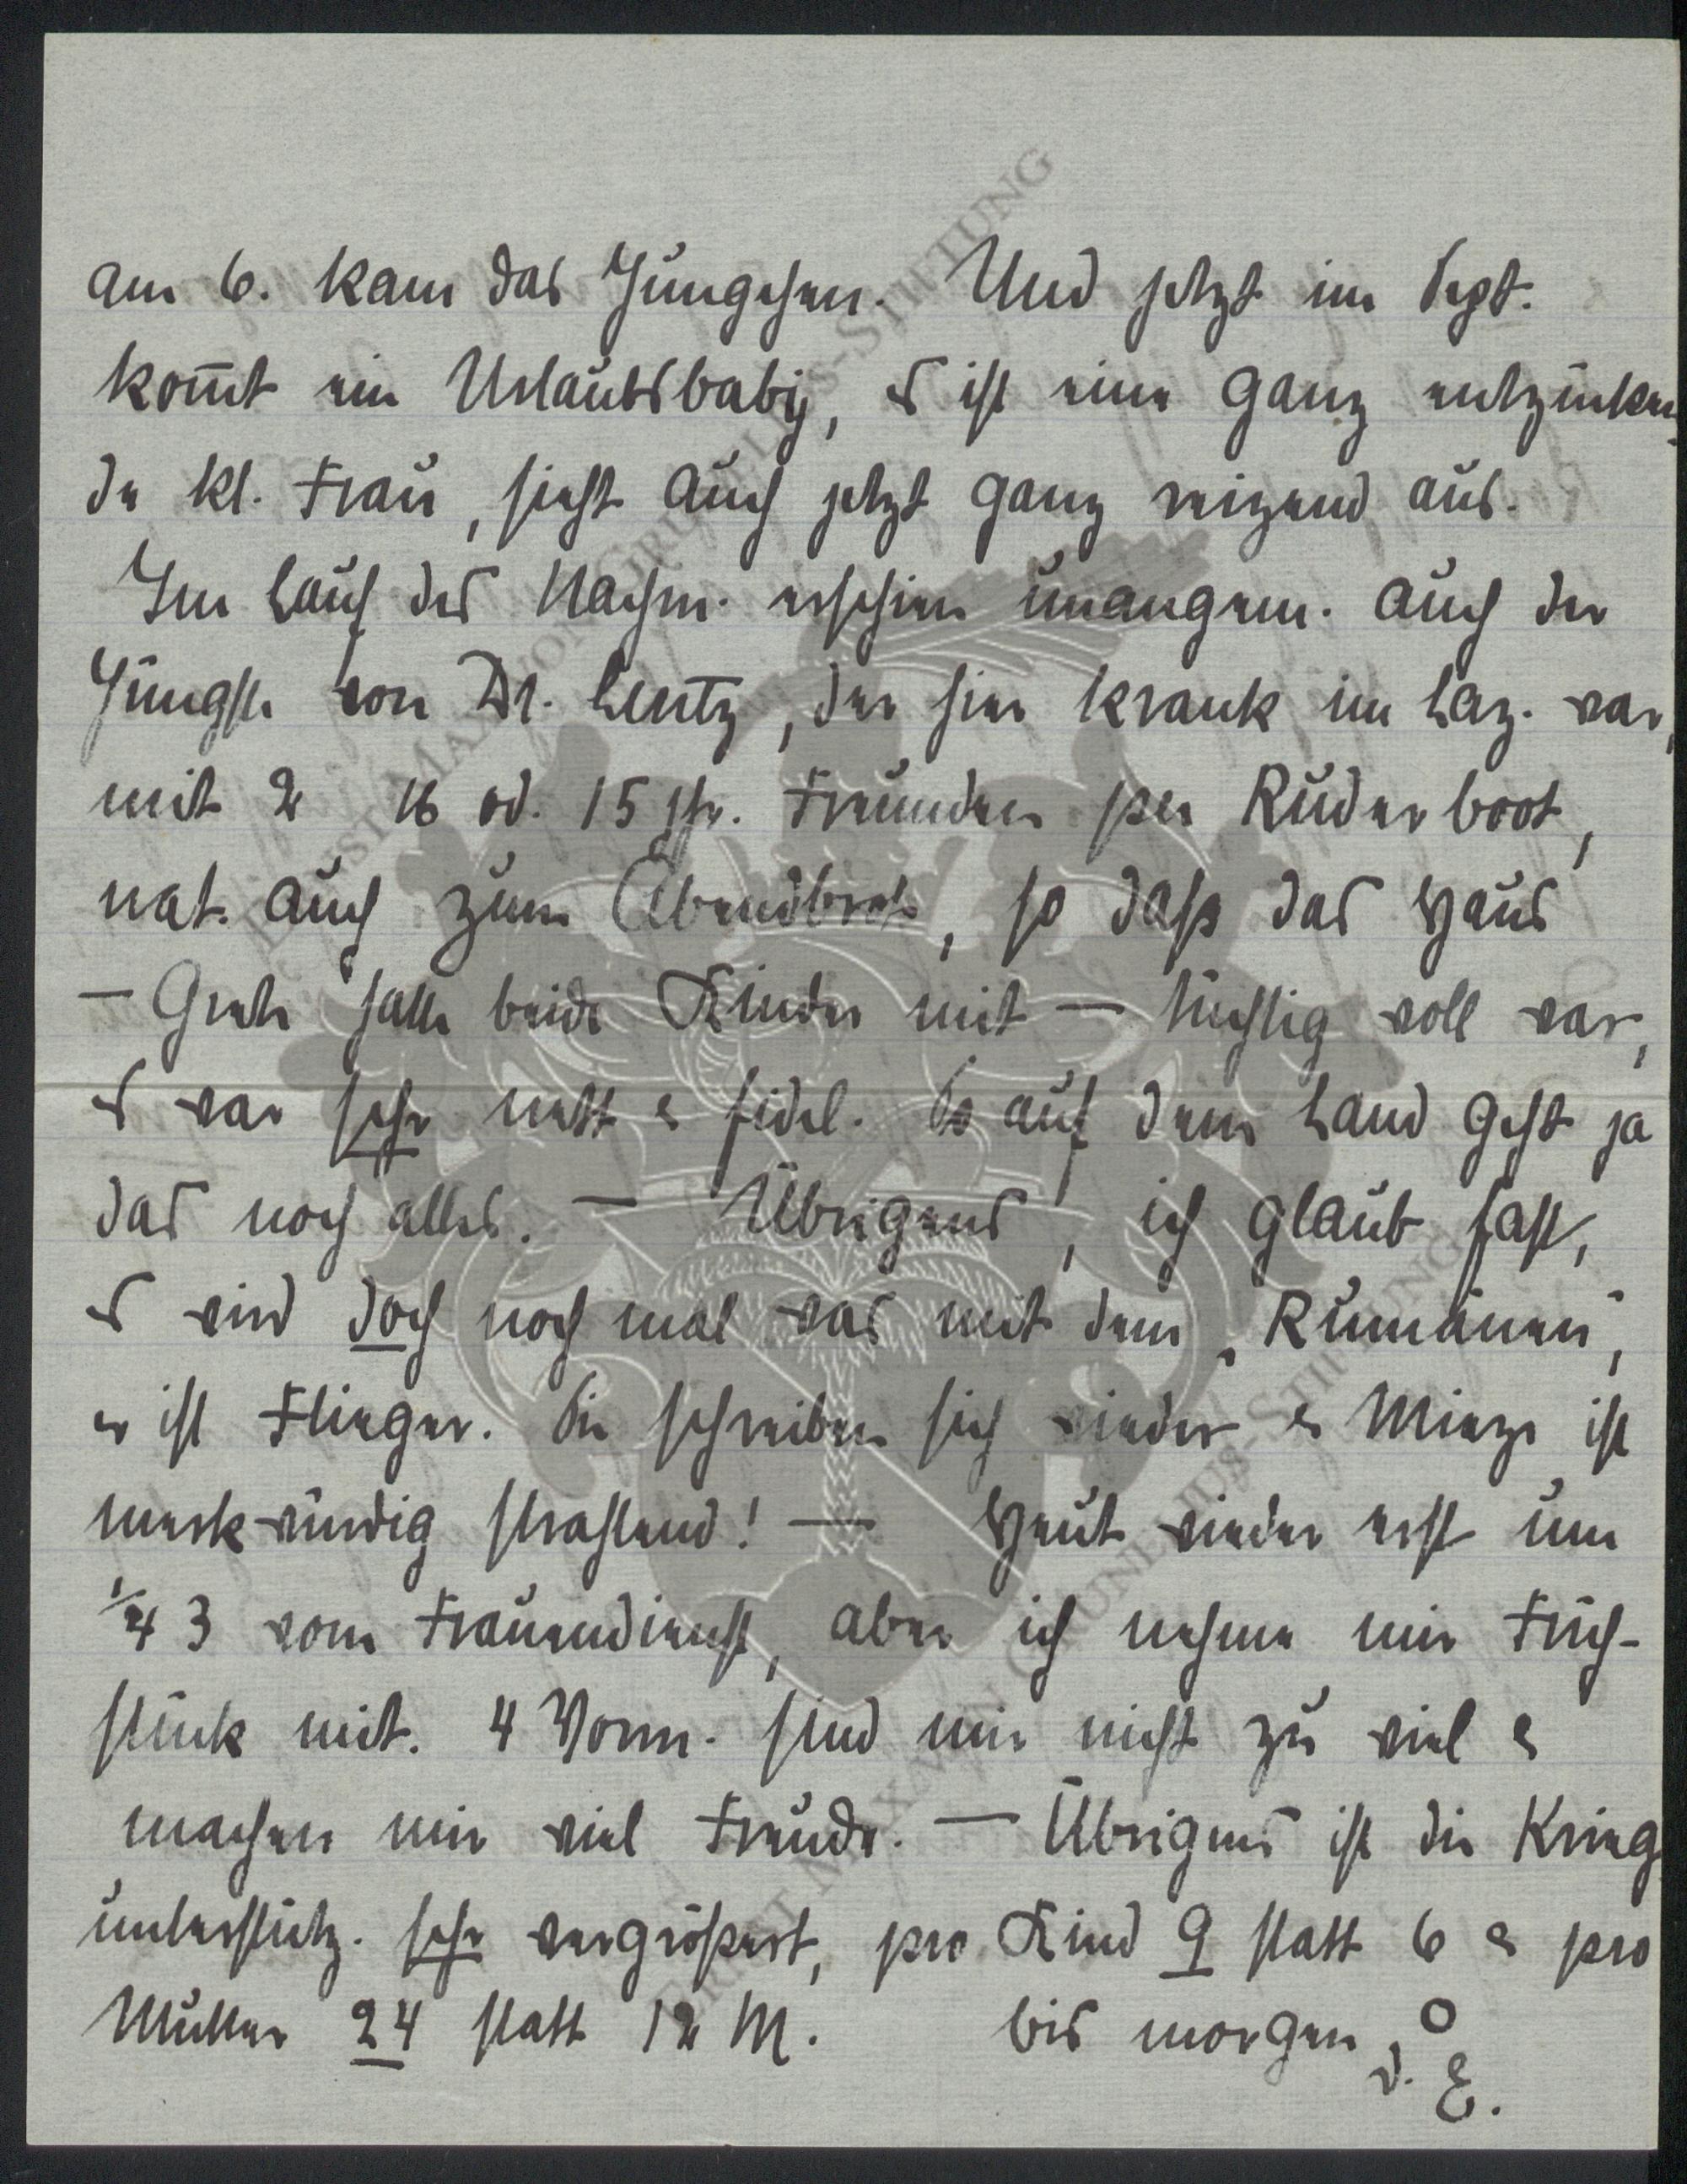 am 6. kam das Jungchen. Und jetzt im Sept.
kom̅t ein Urlaubsbaby, es ist eine ganz entzücken
de kl. Frau, sieht auch jetzt ganz reizend aus.
Im Lauf des Nachm. erschien unangem. auch der
Jüngste von Dr. Lentz, der hier krank im Laz. war,
mit 2 16 od. 15 jhr. Freunden per Ruderboot,
nat. auch zum Abendbrot, so daß das Haus
— Grete hatte beide Kinder mit — tüchtig voll war,
es war sehr nett & fidel. So auf dem Land geht ja
das noch alles. — Übrigens, ich glaub fast,
es wird doch noch mal was mit dem „Rumänen",
er ist Flieger. Sie schreiben sich wieder & Mieze ist
merkwürdig strahlend! — Heut wieder erst um
1/4 3 vom Frauendienst, aber ich nehme mir Früh-
stück mit. 4 Vorm. sind mir nicht zu viel &
machen mir viel Freude. — Übrigens ist die Krieg
unterstütz. sehr vergrößert, pro Kind 9 statt 6 & pro
Mutter 24 statt 12 M. bis morgen, o
d. E.
ERNST MAX VON GRUNELIUS-STIFTUNG
ERNST MAX VON GRUNELIUS-STIFTUNG